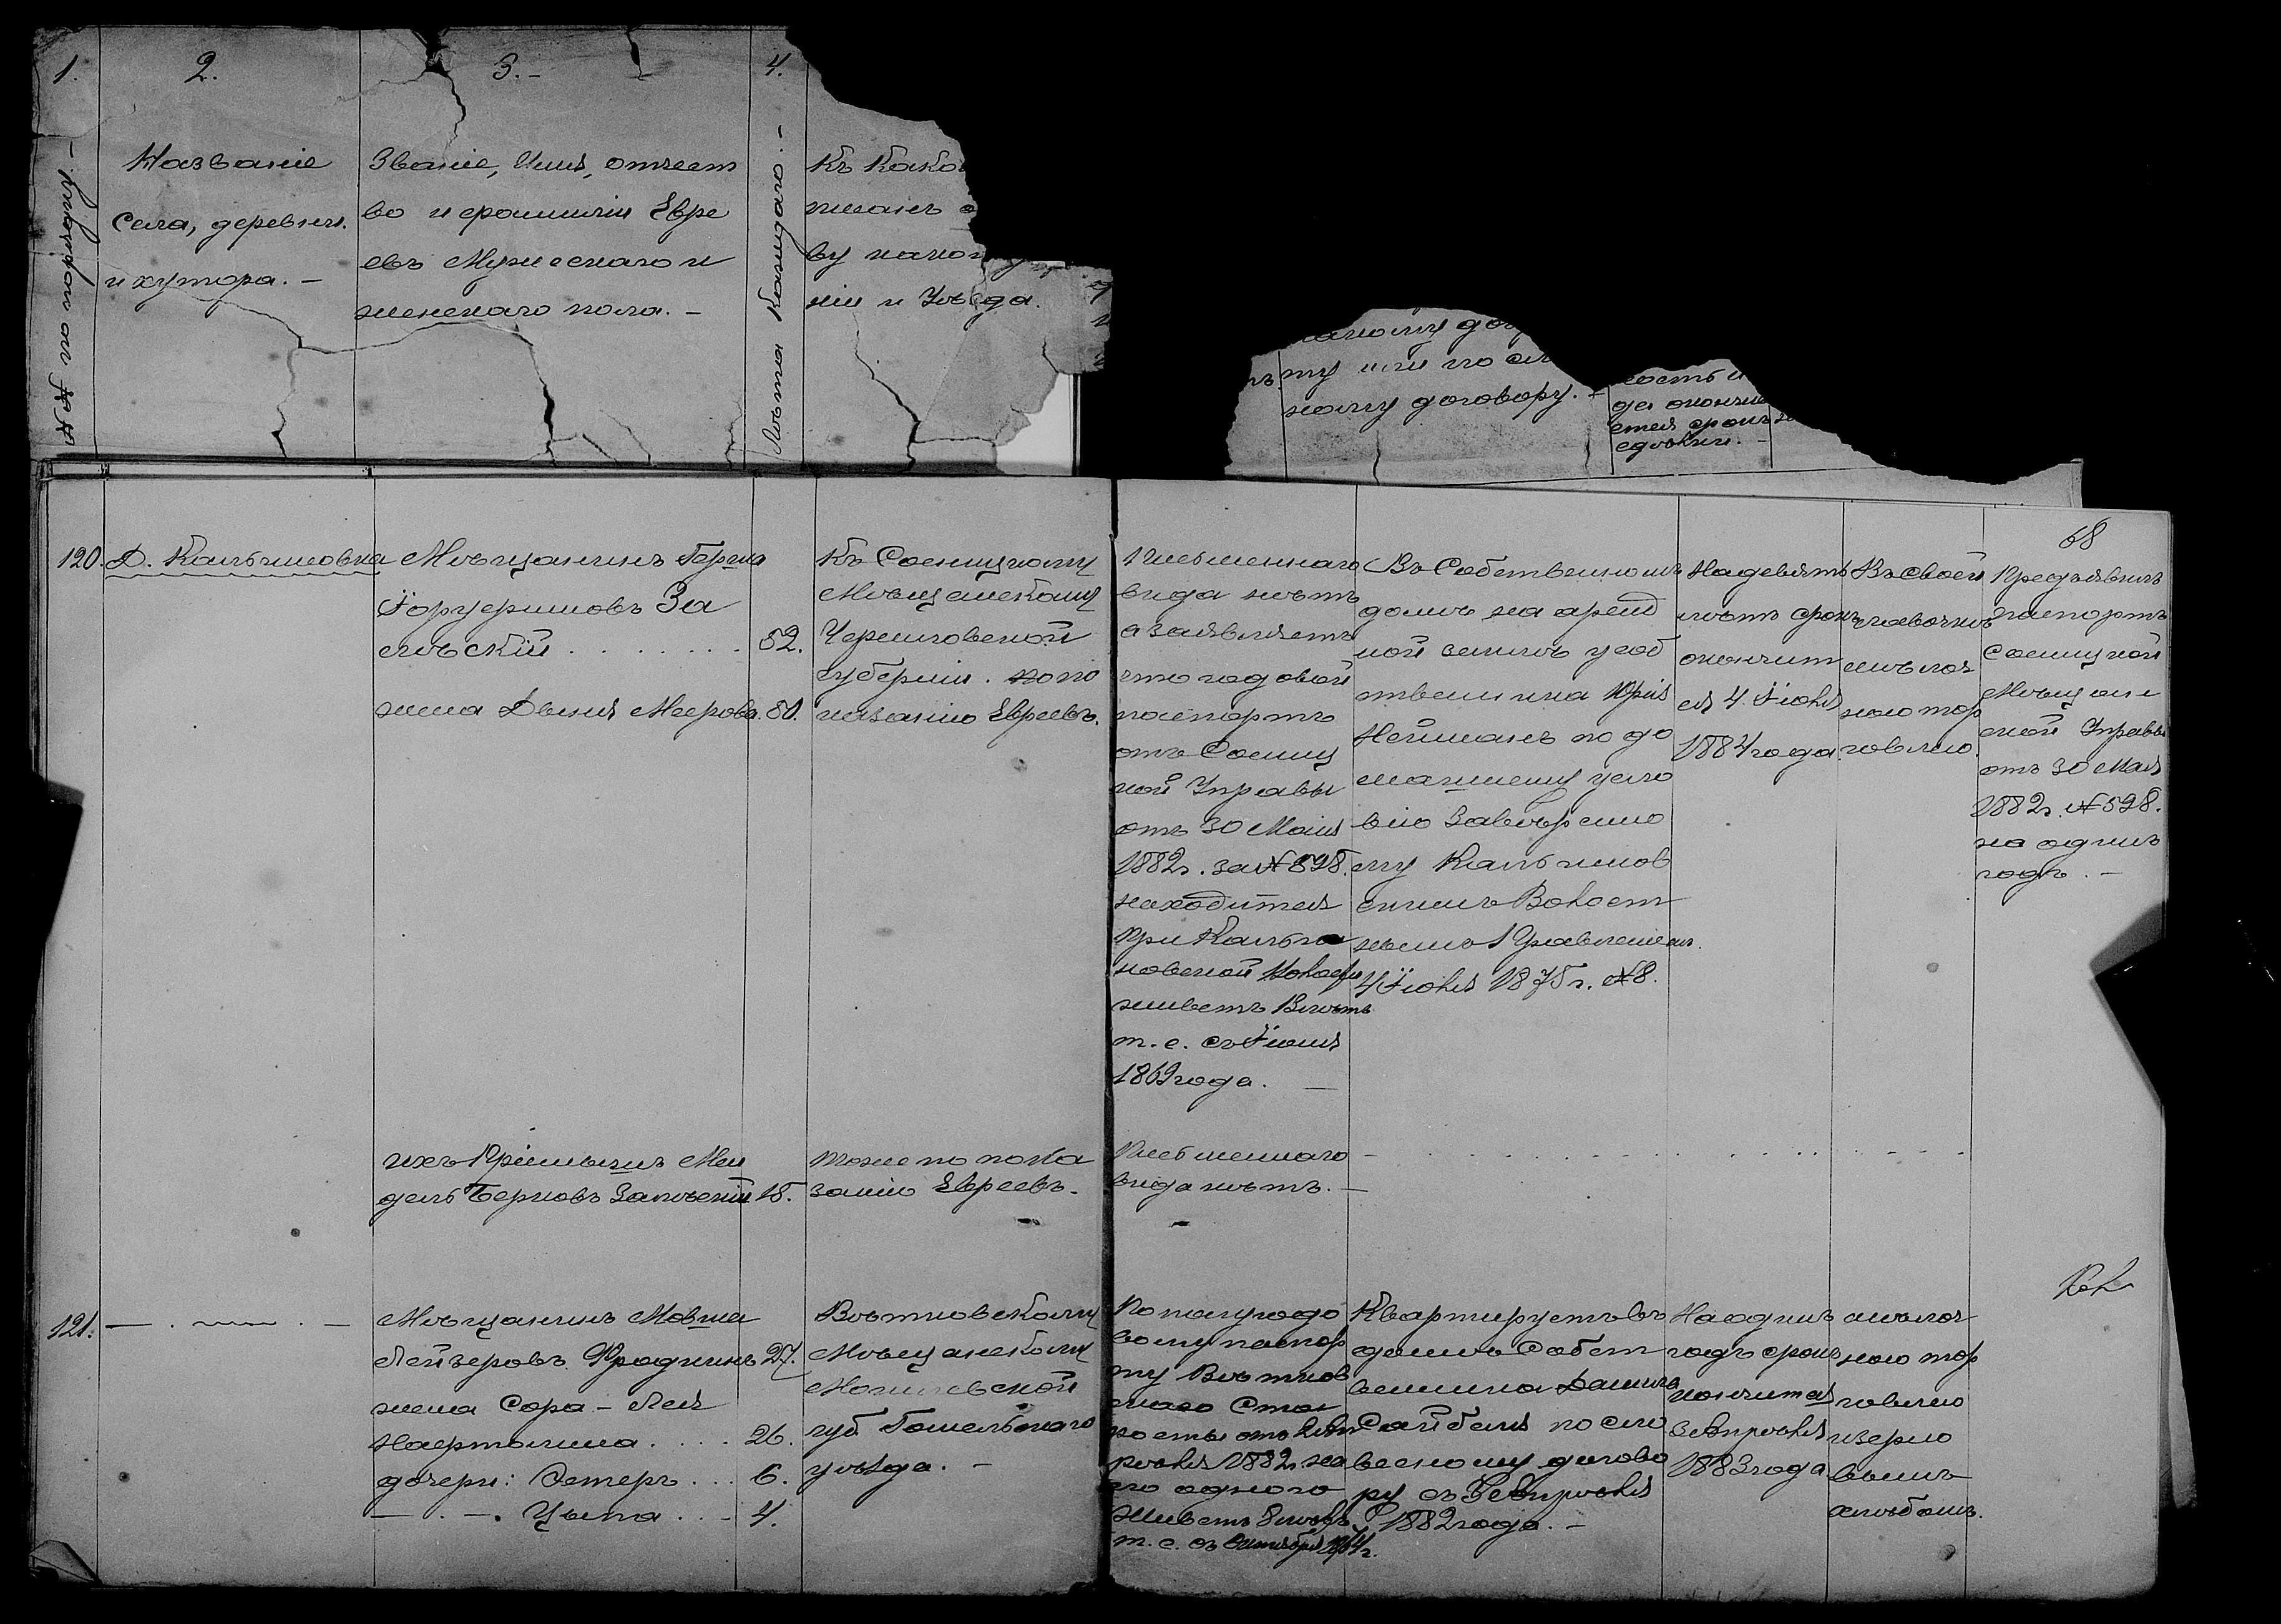 1.
2.
3. –
4.
№№ по порядку. –
Названіе
села, деревни
и хутора. –
Званіе, Имя, отчест
во и фамиліи Евре
евъ Мужескаго и
женскаго пола. –
Лѣта каждаго. –
Къ како
писанъ о
ву како
ніи и Уѣзда.
акому до
ту или по сл
ному договору. –
ность и
да окончи
ется срокъ
сдѣлки. –
68
120.
Д. Кальчиновка
Мѣщанинъ Берка
за
лѣскій . . . . . . . .
52.
жена Двейня Меерова.
50.
Къ Сосницкому
Мѣщанскому
Черниговской
губерніи. по по
казанію Евреевъ.
Письменнаго
вида нѣтъ
а заявляетъ
что годовой
паспортъ
отъ Сосниц
кой Управы
отъ 30 Маія
1882 г. за № 598.
находится
при Кальчи
новской Волости
живетъ
т. е. съ Іюня
1869 года. –
Въ Собственномъ
домѣ на аренд
ной землѣ у соб
ственника Юрія
Нейманъ по до
машнему усло
вію Завѣренно
му Кальчинов
скимъ Волост
нымъ Правленіемъ.
4 Іюля 1875 г. № 8.
На девять
лѣтъ срокъ
окончит
ся 4 Іюля
1884 года.
Въ своей
лавочкѣ
мѣлоч
ною тор
говлею.
Предъявилъ
паспортъ
Сосницкой
Мѣщанс
кой Управы
отъ 30 Мая
1882 г. № 598.
на одинъ
годъ. –
ихъ Пріемышъ Мен
дель Берковъ Залѣскій
18.
тоже по пока
занію Евреевъ.
Письменнаго
вида нѣтъ. –
121.
Мѣщанинъ Мовша
Лейзеровъ Фрадкинъ
27.
жена Сора – Лея
Нафтолина . . . .
26.
дочери: Эстеръ . . .
6.
— . — . Цыпа . . –
4.
Вѣтковскому
Мѣщанскому
Могилевской
губ. Гомельскаго
уѣзда. –
По полугодо
вому паспор
ту Вѣтков
скаго Ста
росты отъ
1882 г. на
его одного
Живетъ 8 лѣтъ
т. е. съ Октября 1874 г.
Квартируетъ въ
домѣ Собст
венника Данила
Сайбеля по сло
весному догово
ру съ 3 Апрѣля
1882 года. –
На одинъ
годъ срокъ
кончится
3 Апрѣля
1883 года
мѣлоч
ною тор
говлею
и зерно
вымъ
хлѣбомъ.